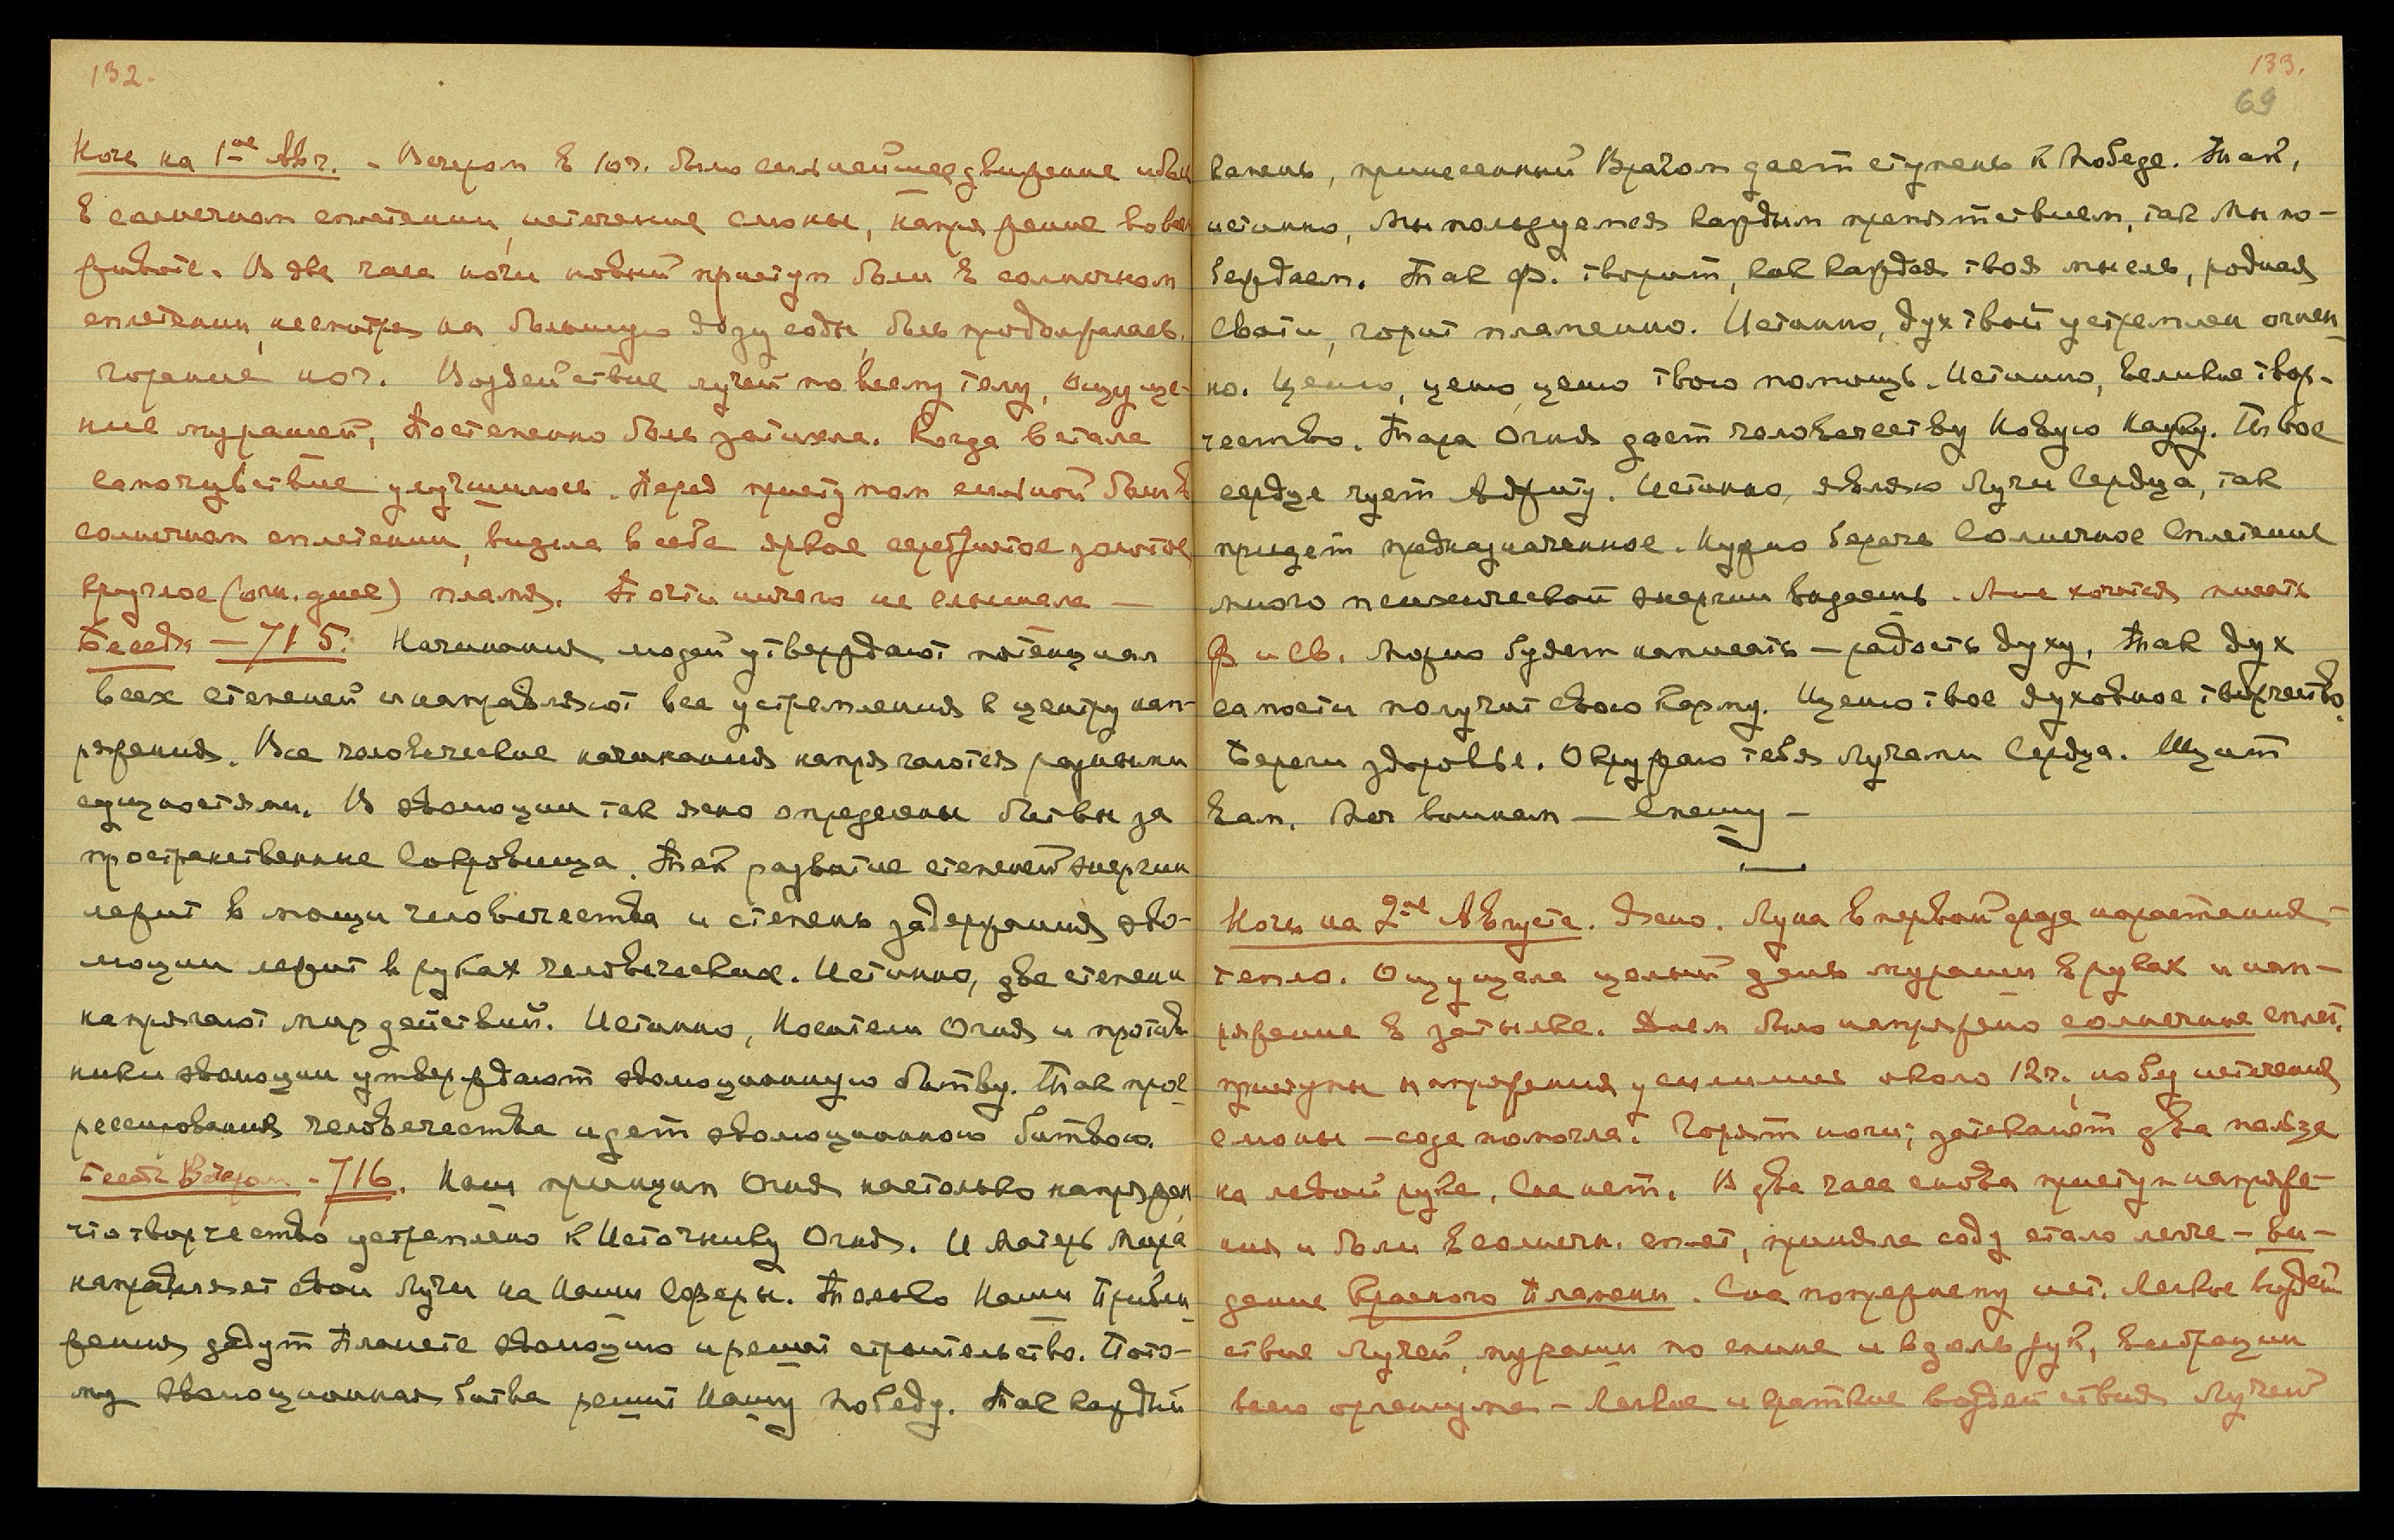 132.
Ночь на 1-ое Авг. - Вечером в 10ч. было сильнейшее движение и боли
в солнечном сплетении, истечение слюны, напряжение во всем
животе. В два часа ночи новый приступ боли в солнечном
сплетении, несмотря на большую дозу соды, боль продолжалась.
горение ног. Воздействие лучей по всему телу, ощуще-
ние мурашей, Постепенно боль затихла. Когда встала
самочувствие улучшилось. Перед приступом сильной боли в
солнечном сплетении, видела в себе яркое серебристое золотое
круглое (огн. дние) пламя. Почти ничего не слышала —
Беседа — 715. Начинания людей утверждают потенциал
всех степеней и направляют все устремления к центру нап-
ряжения. Все человеческие начинания напрягаются разными
сущностями. В эволюции так ясно определены битвы за
пространственные Сокровища. Так развитие степеней энергии
лежит в мощи человечества и степень задержания эво-
люции лежит в руках человеческих. Истинно, две степени
напрягают мир действий. Истинно, Носители Огня и против
ники эволюции утверждают эволюционную битву. Так прог
рессирования человечества идет эволюционною битвою.
Беседа Вечером - 716. Наш принцип Огня настолько напряжен,
что творчество устремлено к Источнику Огня. И Матерь Мира
направляет свои Лучи на Наши Сферы. Только Наши Прибли
жения дадут Планете эволюцию и решат строительство. Пото-
му эволюционная битва решит Нашу Победу. Так каждый
133.
69
камень, принесенный Врагом дает ступень к Победе. Так,
истинно, Мы пользуемся каждым препятствием, так Мы по-
беждаем. Так Ф. творит, как каждая твоя мысль, родная
Свати, горит пламенно. Истинно, дух твой устремлен огнен
но. Ценю, ценю, ценю твою помощь. Истинно, великое твор-
чество. Тара Огня дает человечеству Новую Науку. Твое
сердце чует Аджиту. Истинно, являю Лучи Сердца, так
придет предназначенное. Нужно беречь Солнечное Сплетение
много психической энергии выдаешь. Мне хочется писать
Ф и Св. Можно будет написать — радость духу, Так дух
самости получит свою Карму. Ценю твое духовное творчество.
Береги здоровье. Окружаю тебя Лучами Сердца. Щит
вам. Меч воинам — Спешу —
Ночь на 2-ое Августа. Ясно. Луна в первой фазе нарастания —
тепло. Ощущала целый день мураши в руках и нап-
ряжение в затылке. Днем было напряжено солнечное сплет.
приступы напряжения усилились около 12ч. истечения
слюны — сода помогла. Горят ноги; затекают два пальца
на левой руке, Сна нет. В два часа снова приступ напряже-
ния и боли в солнечн. сплет, приняла соду стало легче — ви-
дение Красного Пламени. Сна попрежнему нет. Легкое воздей
ствие Лучей, мураши по спине и вдоль рук, вибрации
всего организма — Легкие и краткие воздействия Лучей